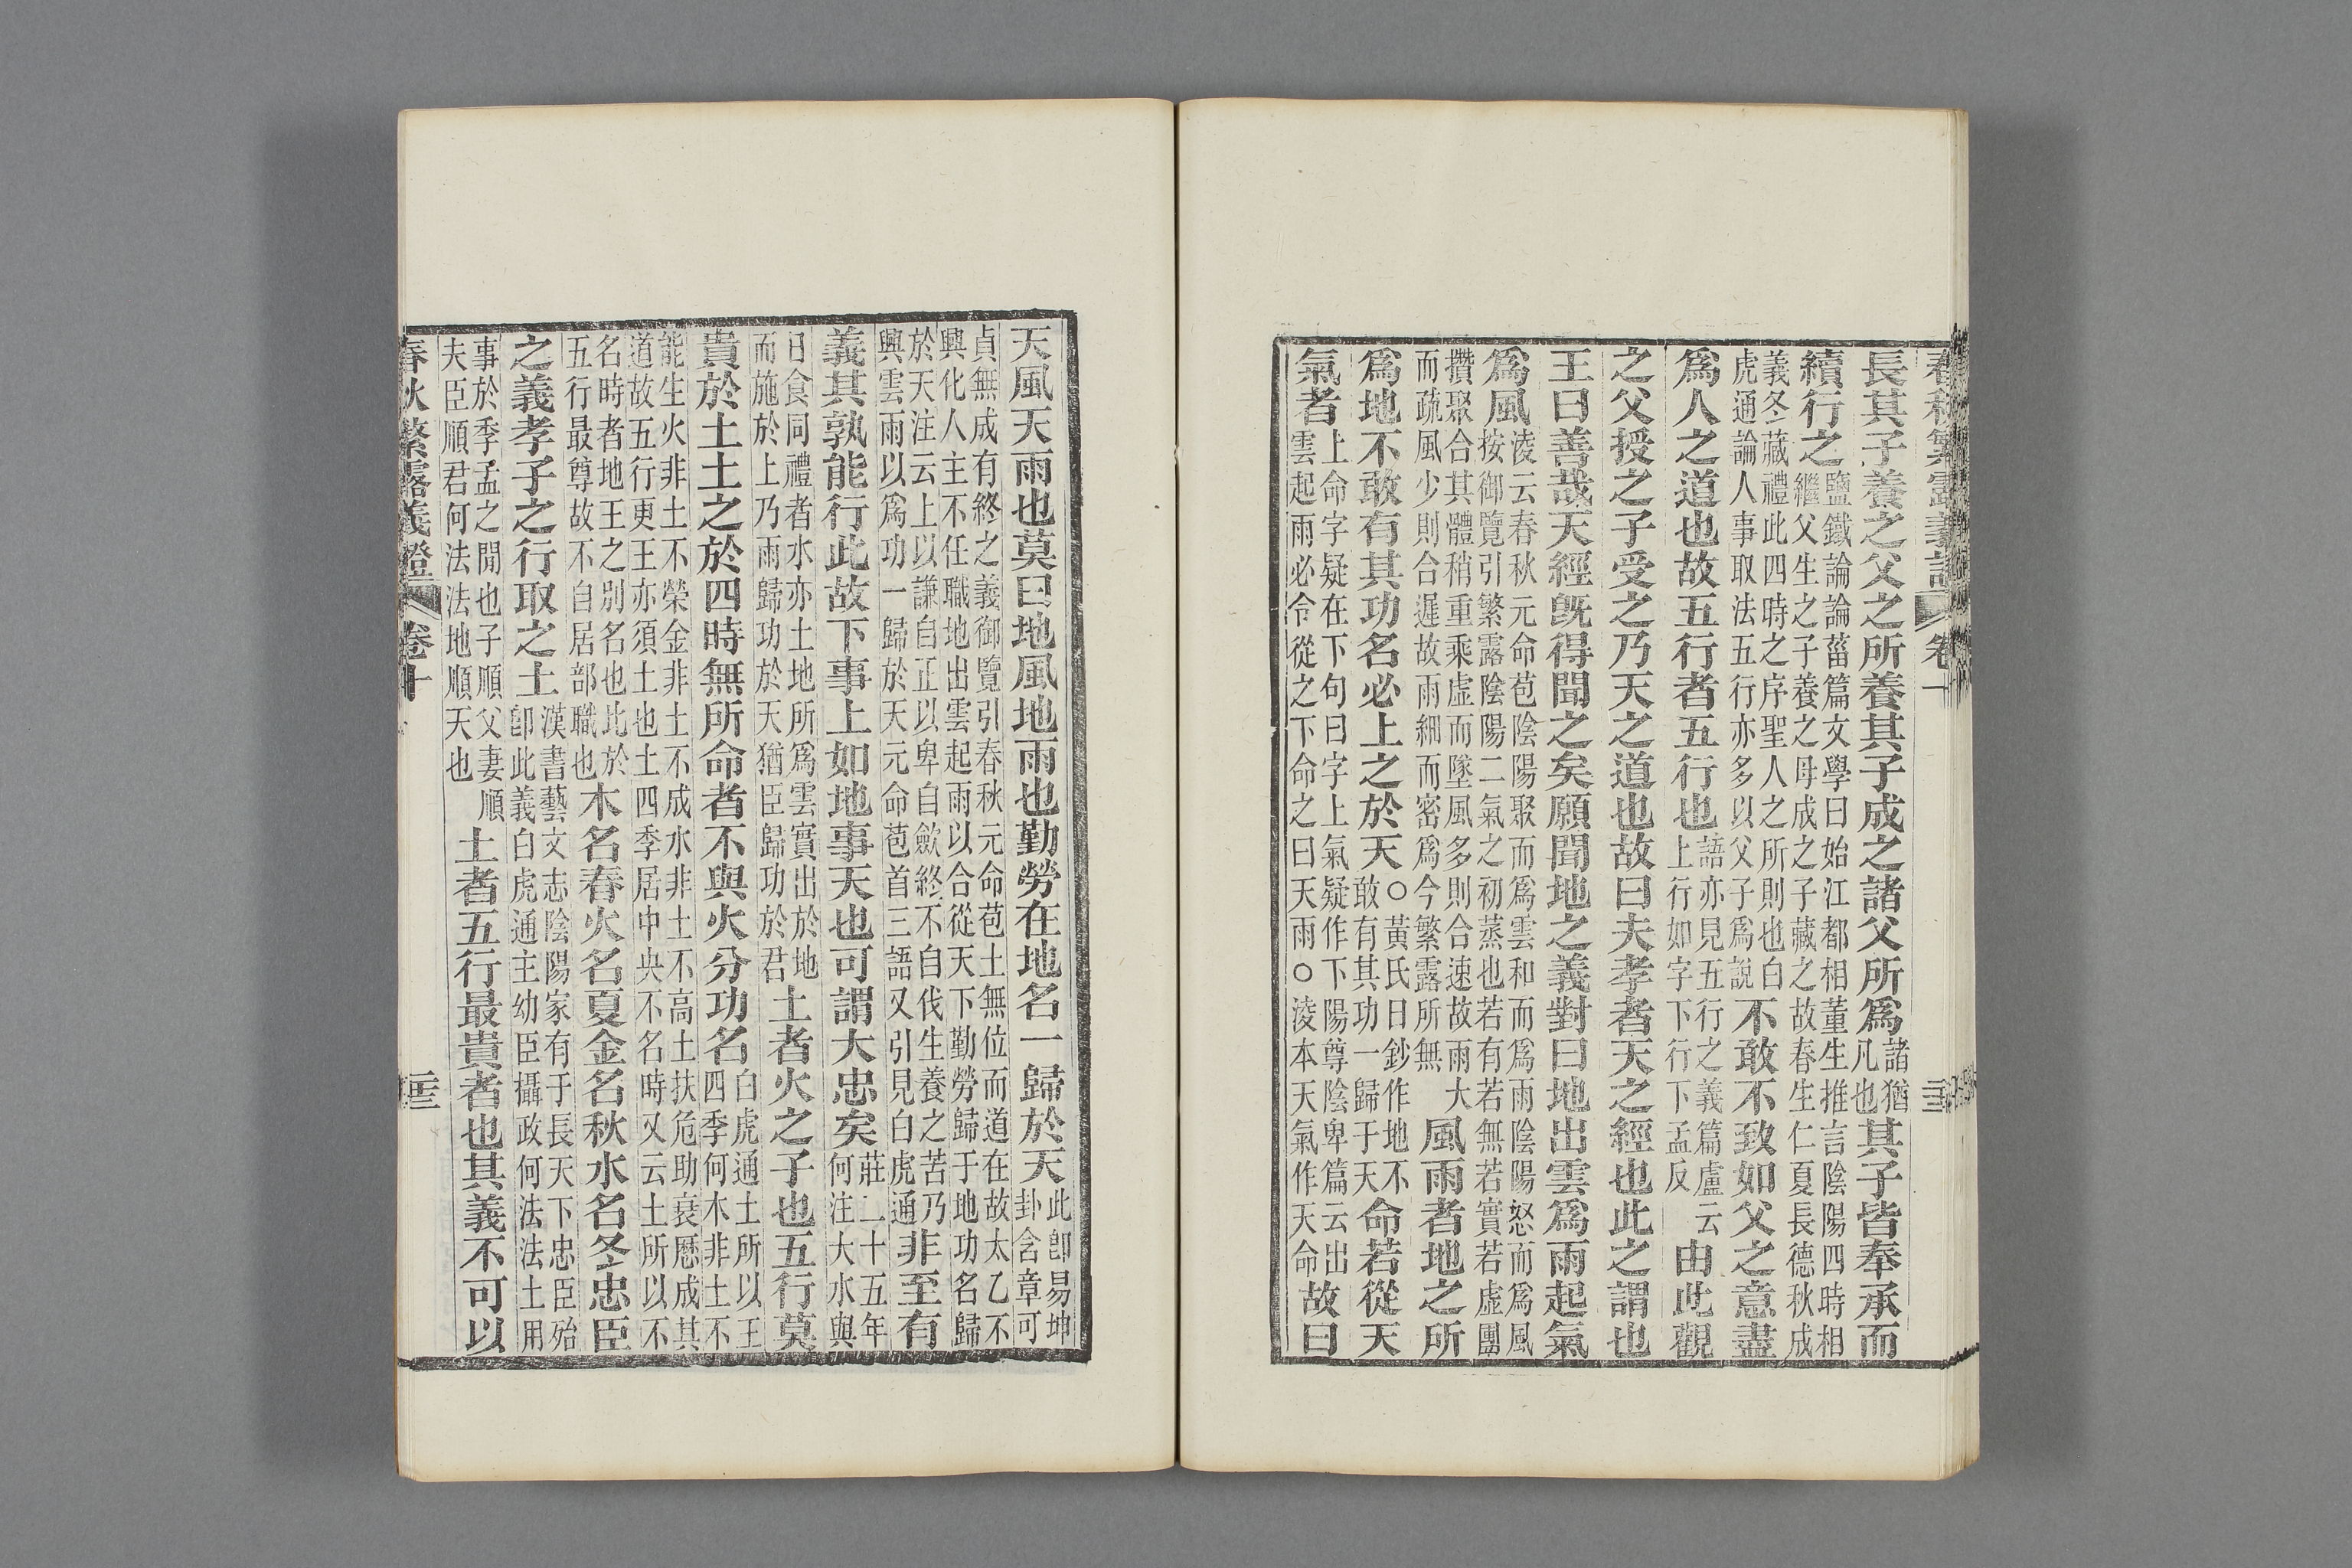 長其子養之父之所養其子成之諸父所爲諸猶凡也其子皆奉承而
續行之鹽鐵論論菑篇文學曰始江都相董生推言陰陽四時相繼父生之子養之母成之子藏之故春生仁夏長德秋成
義冬藏禮此四時之序聖人之所則也白虎通論人事取法五行亦多以父子爲說不敢不致如父之意盡
爲人之道也故五行者五行也語亦見五行之義篇盧云上行如字下行下孟反由此觀
之父授之子受之乃天之道也故曰夫孝者天之經也此之謂也
王曰善哉天經旣得聞之矣願聞地之義對曰地出雲爲雨起氣
爲風淩云春秋元命苞陰陽聚而爲雲和而爲雨陰陽怒而爲風按御覽引繁露陰陽二氣之初蒸也若有若無若實若虛團
攢聚合其體稍重乘虛而墜風多則合速故雨大而疏風少則合遲故雨細而密爲今繁露所無風雨者地之所
爲地不敢有其功名必上之於天○黃氏日鈔作地不敢有其功一歸于天命若從天
氣者上命字疑在下句曰字上氣疑作下陽尊陰卑篇云出雲起雨必令從之下命之曰天雨○淩本天氣作天命故曰
天風天雨也莫曰地風地雨也勤勞在地名一歸於天此卽易坤卦含章可
貞無成有終之義御覽引春秋元命苞土無位而道在故太乙不興化人主不任職地出雲起雨以合從天下勤勞歸于地功名歸
於天注云上以謙自正以卑自斂終不自伐生養之苦乃興雲雨以爲功一歸於天元命苞首三語又引見白虎通非至有
義其孰能行此故下事上如地事天也可謂大忠矣莊二十五年何注大水與
日食同禮者水亦土地所爲雲實出於地而施於上乃雨歸功於天猶臣歸功於君土者火之子也五行莫
貴於土土之於四時無所命者不與火分功名白虎通土所以王四季何木非土不
能生火非土不榮金非土不成水非土不高土扶危助衰歷成其道故五行更王亦須土也土四季居中央不名時又云土所以不
名時者地土之別名也比於五行最尊故不自居部職也木名春火名夏金名秋水名冬忠臣
之義孝子之行取之土漢書藝文志陰陽家有于長天下忠臣殆卽此義白虎通主幼臣攝政何法法土用
事於季孟之閒也子順父妻順夫臣順君何法法地順天也土者五行最貴者也其義不可以
春秋繁露義證 卷十